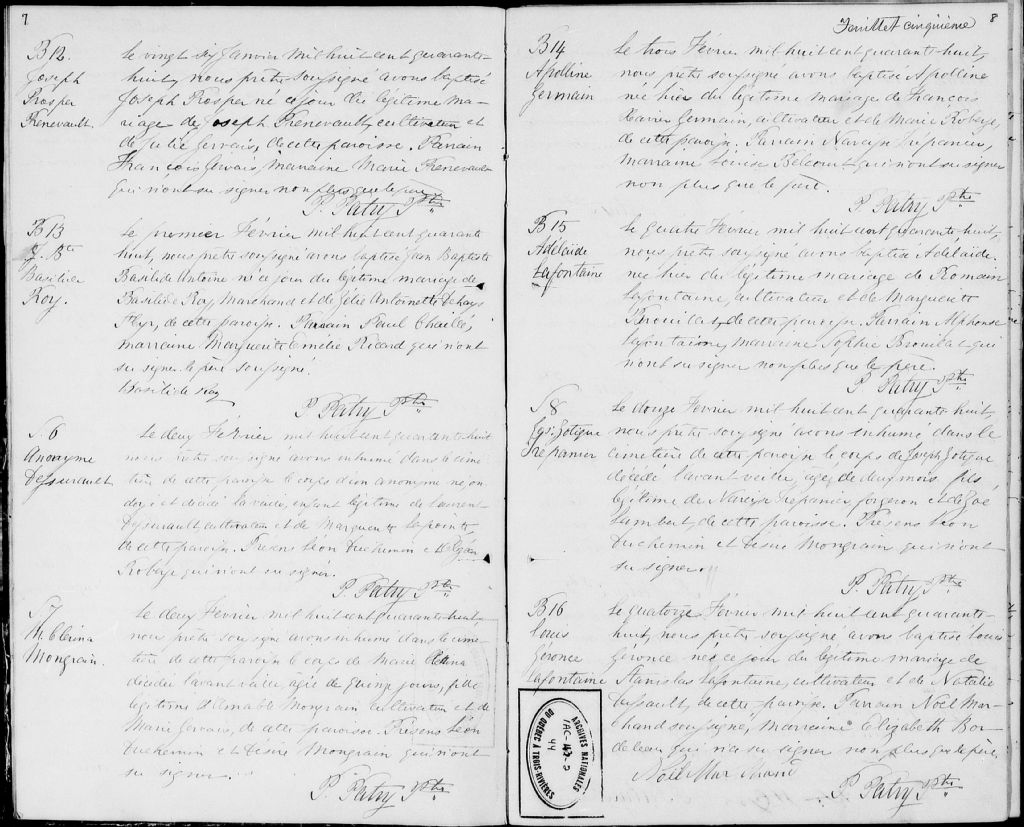 7
B 12.
Joseph
Prosper
Trenevault.
Le vingt six Janvier mil huit cent quarante
huit, nous prêtre soussigné avons baptisé
Joseph Prosper né ce jour du légitime ma-
riage de Joseph Trenevault, cultivateur et
de Julie Gervais, de cette paroisse. Parrain
François Gervais, marraine Marie Trenevault
qui n'ont su signer, non plus que le père.
P. Patry Ptre
B 13
J. Bte
Basilide
Roy.
Le premier Février mil huit cent quarante
huit, nous prêtre soussigné avons baptisé Jean Baptiste
Basilide Antoine né ce jour du légitime mariage de
Basilide Roy, Marchand et de Julie Antoinette
de cette paroisse. Parrain Paul
marraine Marguerite Emélie Ricard qui n'ont
su signer. le père soussigné.
Basilide Roy
P. Patry Ptre
S. 6
Anonyme
Dessurault
Le deux Février mil huit cent quarante huit
nous prêtre soussigné avons inhumé dans le cime
tière de cette paroisse le corps d'un anonyme né, on
doyé et décédé la veille, enfant légitime de Laurent
Dessurault, cultivateur et de Marguerite Lepointe
de cette paroisse. Présens Léon Duchemin et
Roberge qui n'ont su signer.
P. Patry Ptre
S 7
M. Clerina
Mongrain.
Le deux Février mil huit cent quarante huit,
nous prêtre soussigné avons inhumé dans le cime
tière de cette paroisse le corps de Marie
décédée l'avant veille, agée de quinze jours, fille
légitime d'Amable Mongrain cultivateur et de
Marie Gervais, de cette paroisse. Présens Léon
Duchemin et Désiré Mongrain qui n'ont
su signer.
P. Patry Ptre
Feuillet cinquième
8
B 14
Apolline
Germain
Le trois Février mil huit cent quarante huit,
nous prêtre soussigné avons baptisé Apolline
née hier du légitime mariage de François
Xavier Germain, cultivateur et de Marie Roberge,
de cette paroisse. Parrain Narcisse Trépannier,
marraine Louise Belcourt qui n'ont su signer
non plus que le père.
P. Patry Ptre
B 15
Adélaïde
Lafontaine
Le quatre Février mil huit cent quarante huit,
nous prêtre soussigné avons baptisé Adélaïde
née hier du légitime mariage de Romain
Lafontaine, cultivateur et de Marguerite
Brouillet, de cette paroisse. Parrain Alphonse
Lafontaine, marraine Sophie Brouillet qui
n'ont su signer non plus que le père.
P. Patry Ptre
S 8
Jos. Zotique
Trepanier
Le douze Février mil huit cent quarante huit,
nous prêtre soussigné avons inhumé dans le
cimetière de cette paroisse le corps de Joseph Zotique
décédé l'avant veille, agé de deux mois, fils
légitime de Narcisse Trepanier, forgeron et de Zoé
Lambert, de cette paroisse. Présens Léon
Duchemin et Désiré Mongrain qui n'ont
su signer.
P. Patry Ptre
B 16
Louis
Géronce
Lafontaine
Le quatorze Février mil huit cent quarante-
huit, nous prêtre soussigné avons baptisé Louis
Géronce né ce jour du légitime mariage de
Stanislas Lafontaine, cultivateur et de Natalie
Dussault, de cette paroisse. Parrain Noël Mar-
chand soussigné, marraine Elizabeth Bor-
deleau qui n'a su signer non plus que le père.
Noël Marchand
P. Patry Ptre
ARCHIVES NATIONALES
DU QUÉBEC À TROIS-RIVIÈRES
44